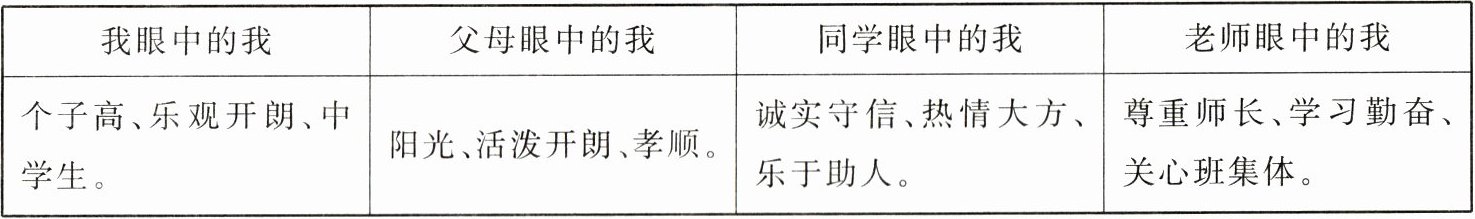 我眼中的我
父母眼中的我
同学眼中的我
老师眼中的我
个子高、乐观开朗、中
学生。
阳光、活泼开朗、孝顺。
诚实守信、热情大方、
乐于助人。
尊重师长、学习勤奋、
关心班集体。